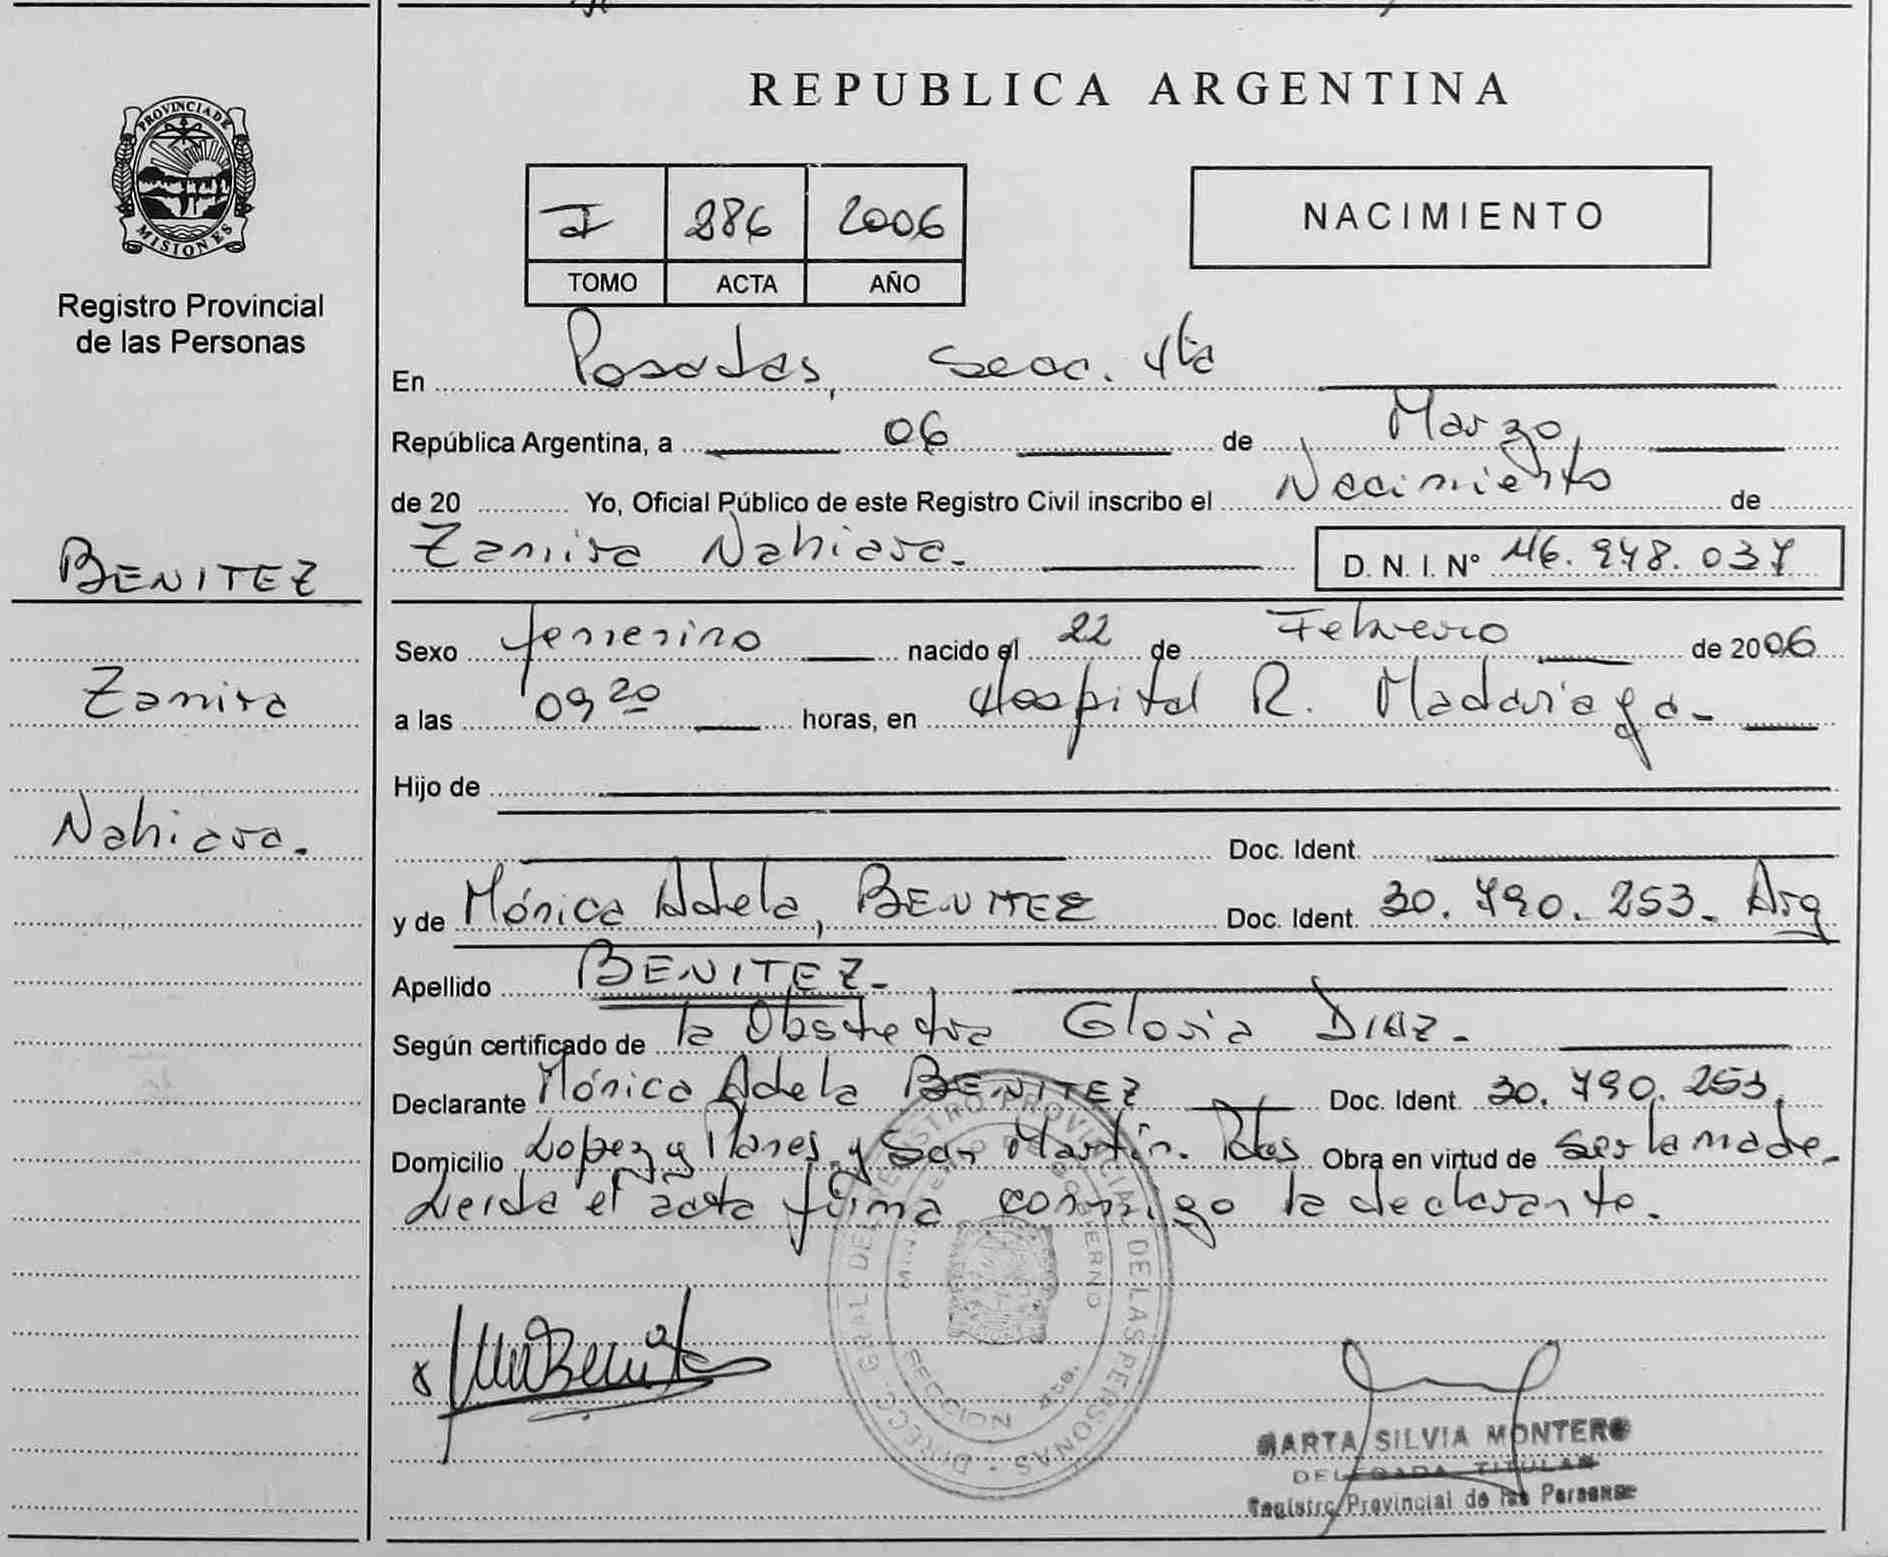 PROVINCIA DE
MISIONES
Registro Provincial
de las Personas
BENITEZ
Zamira
Nahiara.
REPUBLICA ARGENTINA
I 286 2006
TOMO ACTA AÑO
NACIMIENTO
En Posadas, Secc. 4ta
República Argentina, a 06 de Marzo
de 20 Yo, Oficial Público de este Registro Civil inscribo el Nacimiento de
Zamira Nahiara. D. N. I. Nº 46.948.037
Sexo femenino nacido el 22 de Febrero de 2006
a las 09 20 horas, en Hospital R. Madariaga-
Hijo de
Doc. Ident.
y de Mónica Adela, BENITEZ Doc. Ident. 30.790.253. Arg
Apellido BENITEZ-
Según certificado de la Obstetra Gloria DIAZ-
Declarante Mónica Adela BENITEZ Doc. Ident. 30.790.253,
Domicilio Lopez y Planes y San Martín. Pdas Obra en virtud de ser la madre-
Leida el acta firma conmigo la declarante.
DIRECC. GRAL DEL REGISTRO PROVINCIAL DE LAS PERSONAS
MINISTERIO DE GOBIERNO
SECCION 4ta.
MARTA SILVIA MONTERO
DELEGADA TITULAR
Registro Provincial de las Personas